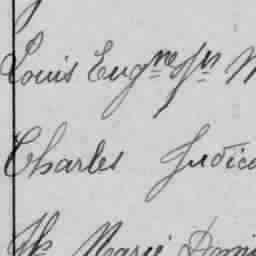 Louis Eug^ne J^n M
Charles Judica
Marie Domi